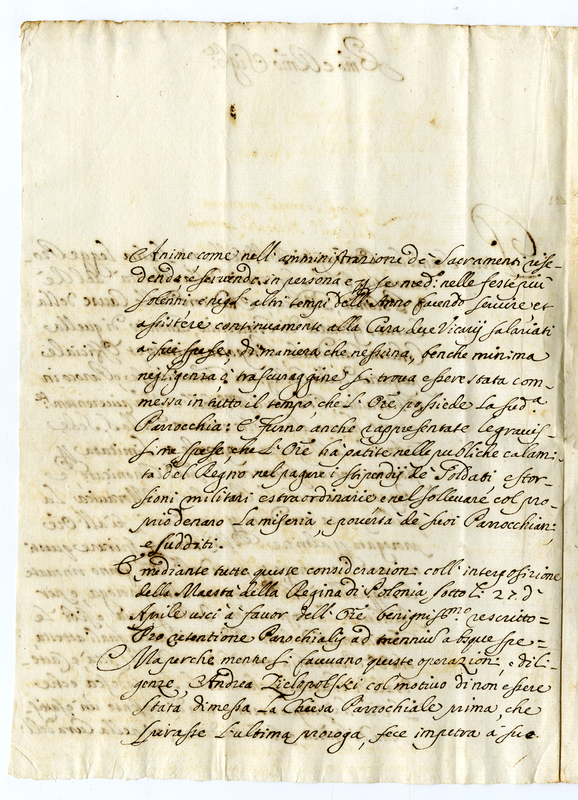 Anime come nell'amministrazione de Sacramenti rise-
dendo, e servendo in persona e se med.º nelle feste più
solenni, e negl'altri tempi dell'Anno facendo servire et
assistere continuamente alla Cura due Vicarij salariati
a sue spese, di maniera che nessuna, benche minima
negligenza ò trascuraggine si trova essere stata com-
messa in tutto il tempo, che l'Ore possiede la sud.ª
Parrocchia: E furno anche rappresentate le gravis-
sime spese che l'Ore hà patite nelle publiche calami-
tà del Regno nel pagare i stipendij de Soldati, e stor-
sioni militari estraordinarie e nel sollevare col pro-
prio denaro la miseria, e povertà de suoi Parrocchiani
e sudditi.
E mediante tutte queste considerazioni coll'interposizione
della Maestà della Regina di Polonia sotto li 27. d'
Aprile uscì à favor dell'Ore benignis.mo rescritto =
Pro retentione Parochialis ad triennium absque spe =
Ma perche mentre si facevano queste operazioni, e dili-
genze, Andrea Zielopolski col motivo di non essere
stata dimessa la Chiesa Parrocchiale prima, che
spirasse l'ultima proroga, fece impetra à sue